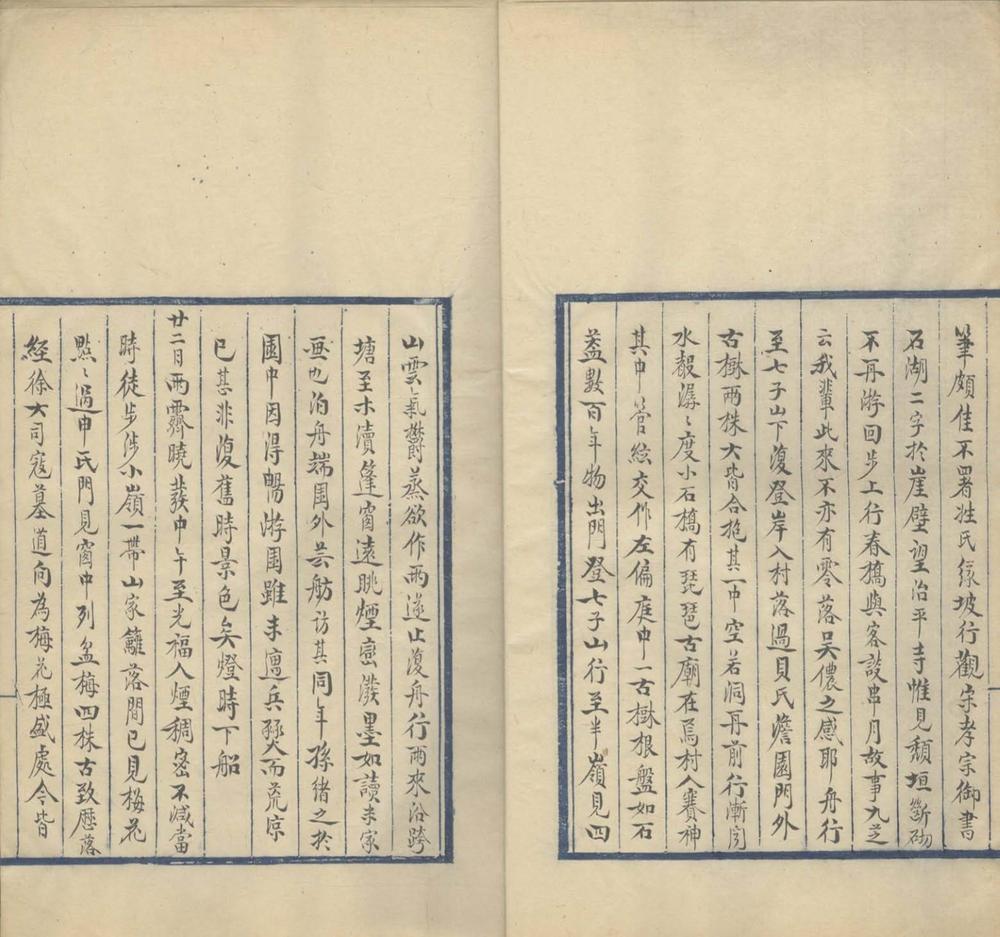 筆頗佳不署姓氏緣坡行觀宋孝宗御書
石湖二字於崖壁望治平寺惟見頹垣斷砌
不再游回步上行春橋與客談串月故事九芝
云我輩此來不亦有零落吳儂之感耶舟行
至七子山下復登岸入村落過貝氏澹園門外
古樹兩株大皆合抱其一中空若洞再前行漸闻
水聲潺〻度小石橋有琵琶古廟在焉村人賽神
其中管絃交作左偏庭中一古樹根盤如石
葢數百年物出門登七子山行至半嶺見四
山雲氣欝蒸欲作雨遂止復舟行雨來沿跨
塘至木瀆篷窗遠眺煙巒潑墨如讀米家
畫也泊舟端園外芸舫訪其同年孫緒之於
園中因得暢游園雖未遭兵燹而荒涼
已甚非復舊時景色矣燈時下船
廿二日雨霽曉發中午至光福人煙稠密不減當
時徒步涉小嶺一帶山家籬落間已見梅花
㸃〻過申氏門見窗中列盆梅四株古致歷落
經徐大司寇墓道向為梅花極盛處今皆